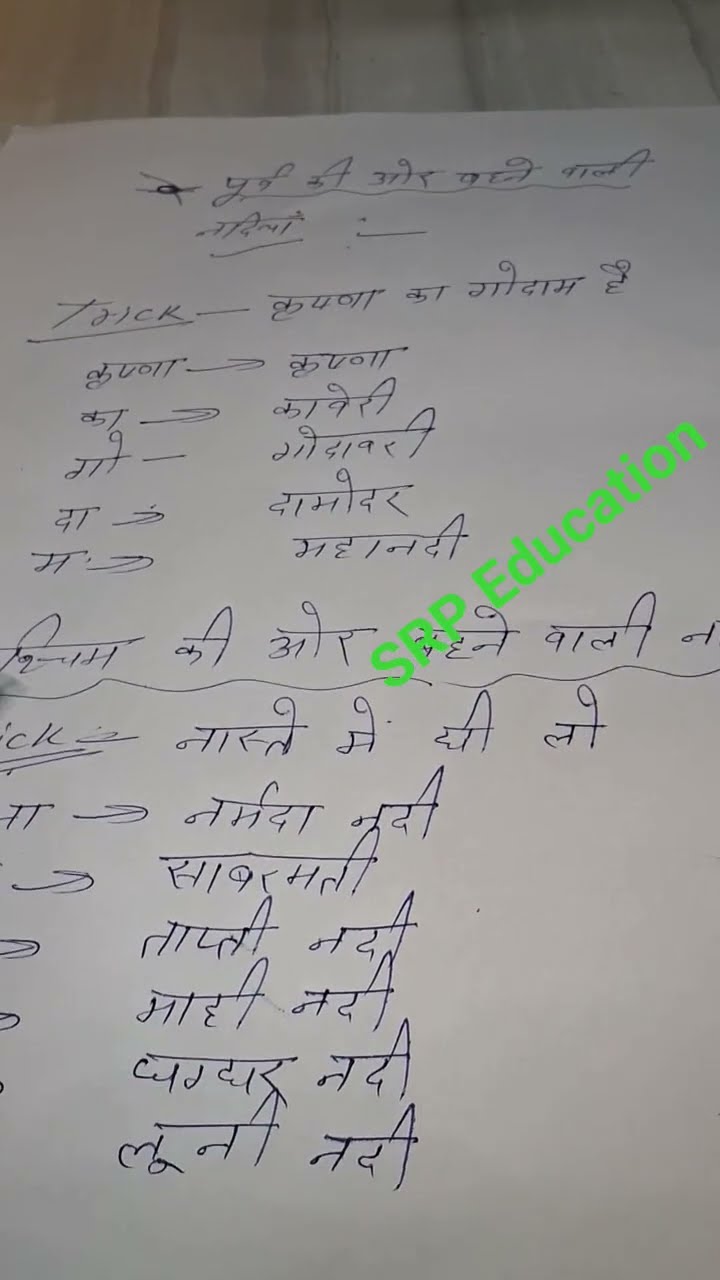 पूर्व की ओर बहने वाली
नदियाँ :—
Trick — कृष्णा का गोदाम है
कृष्णा → कृष्णा
का → कावेरी
गो — गोदावरी
दा → दामोदर
म → महानदी
श्चिम की ओर बहने वाली न
ick :- नास्ते में घी लो
ना → नर्मदा नदी
→ साबरमती
→ ताप्ती नदी
माही नदी
घग्घर नदी
लूनी नदी
SRP Education